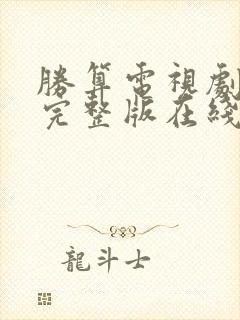 勝算電視劇
完整版在綫
龍斗士